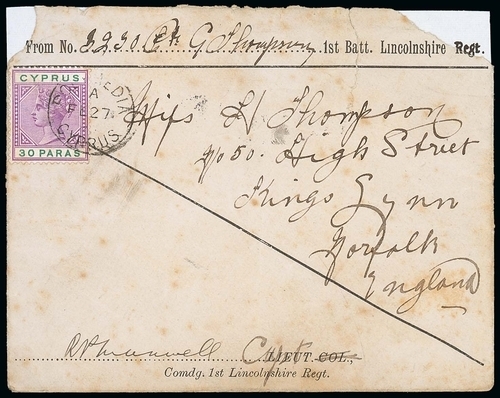 From No. 3230 Pte G Thompson 1st Batt. Lincolnshire Regt.
CYPRUS
30 PARAS
A
27
CYPRUS
Miss L Thompson
No 50. High Street
Kings Lynn
Norfolk
England
Capt LIEUT. COL.,
Comdg. 1st Lincolnshire Regt.